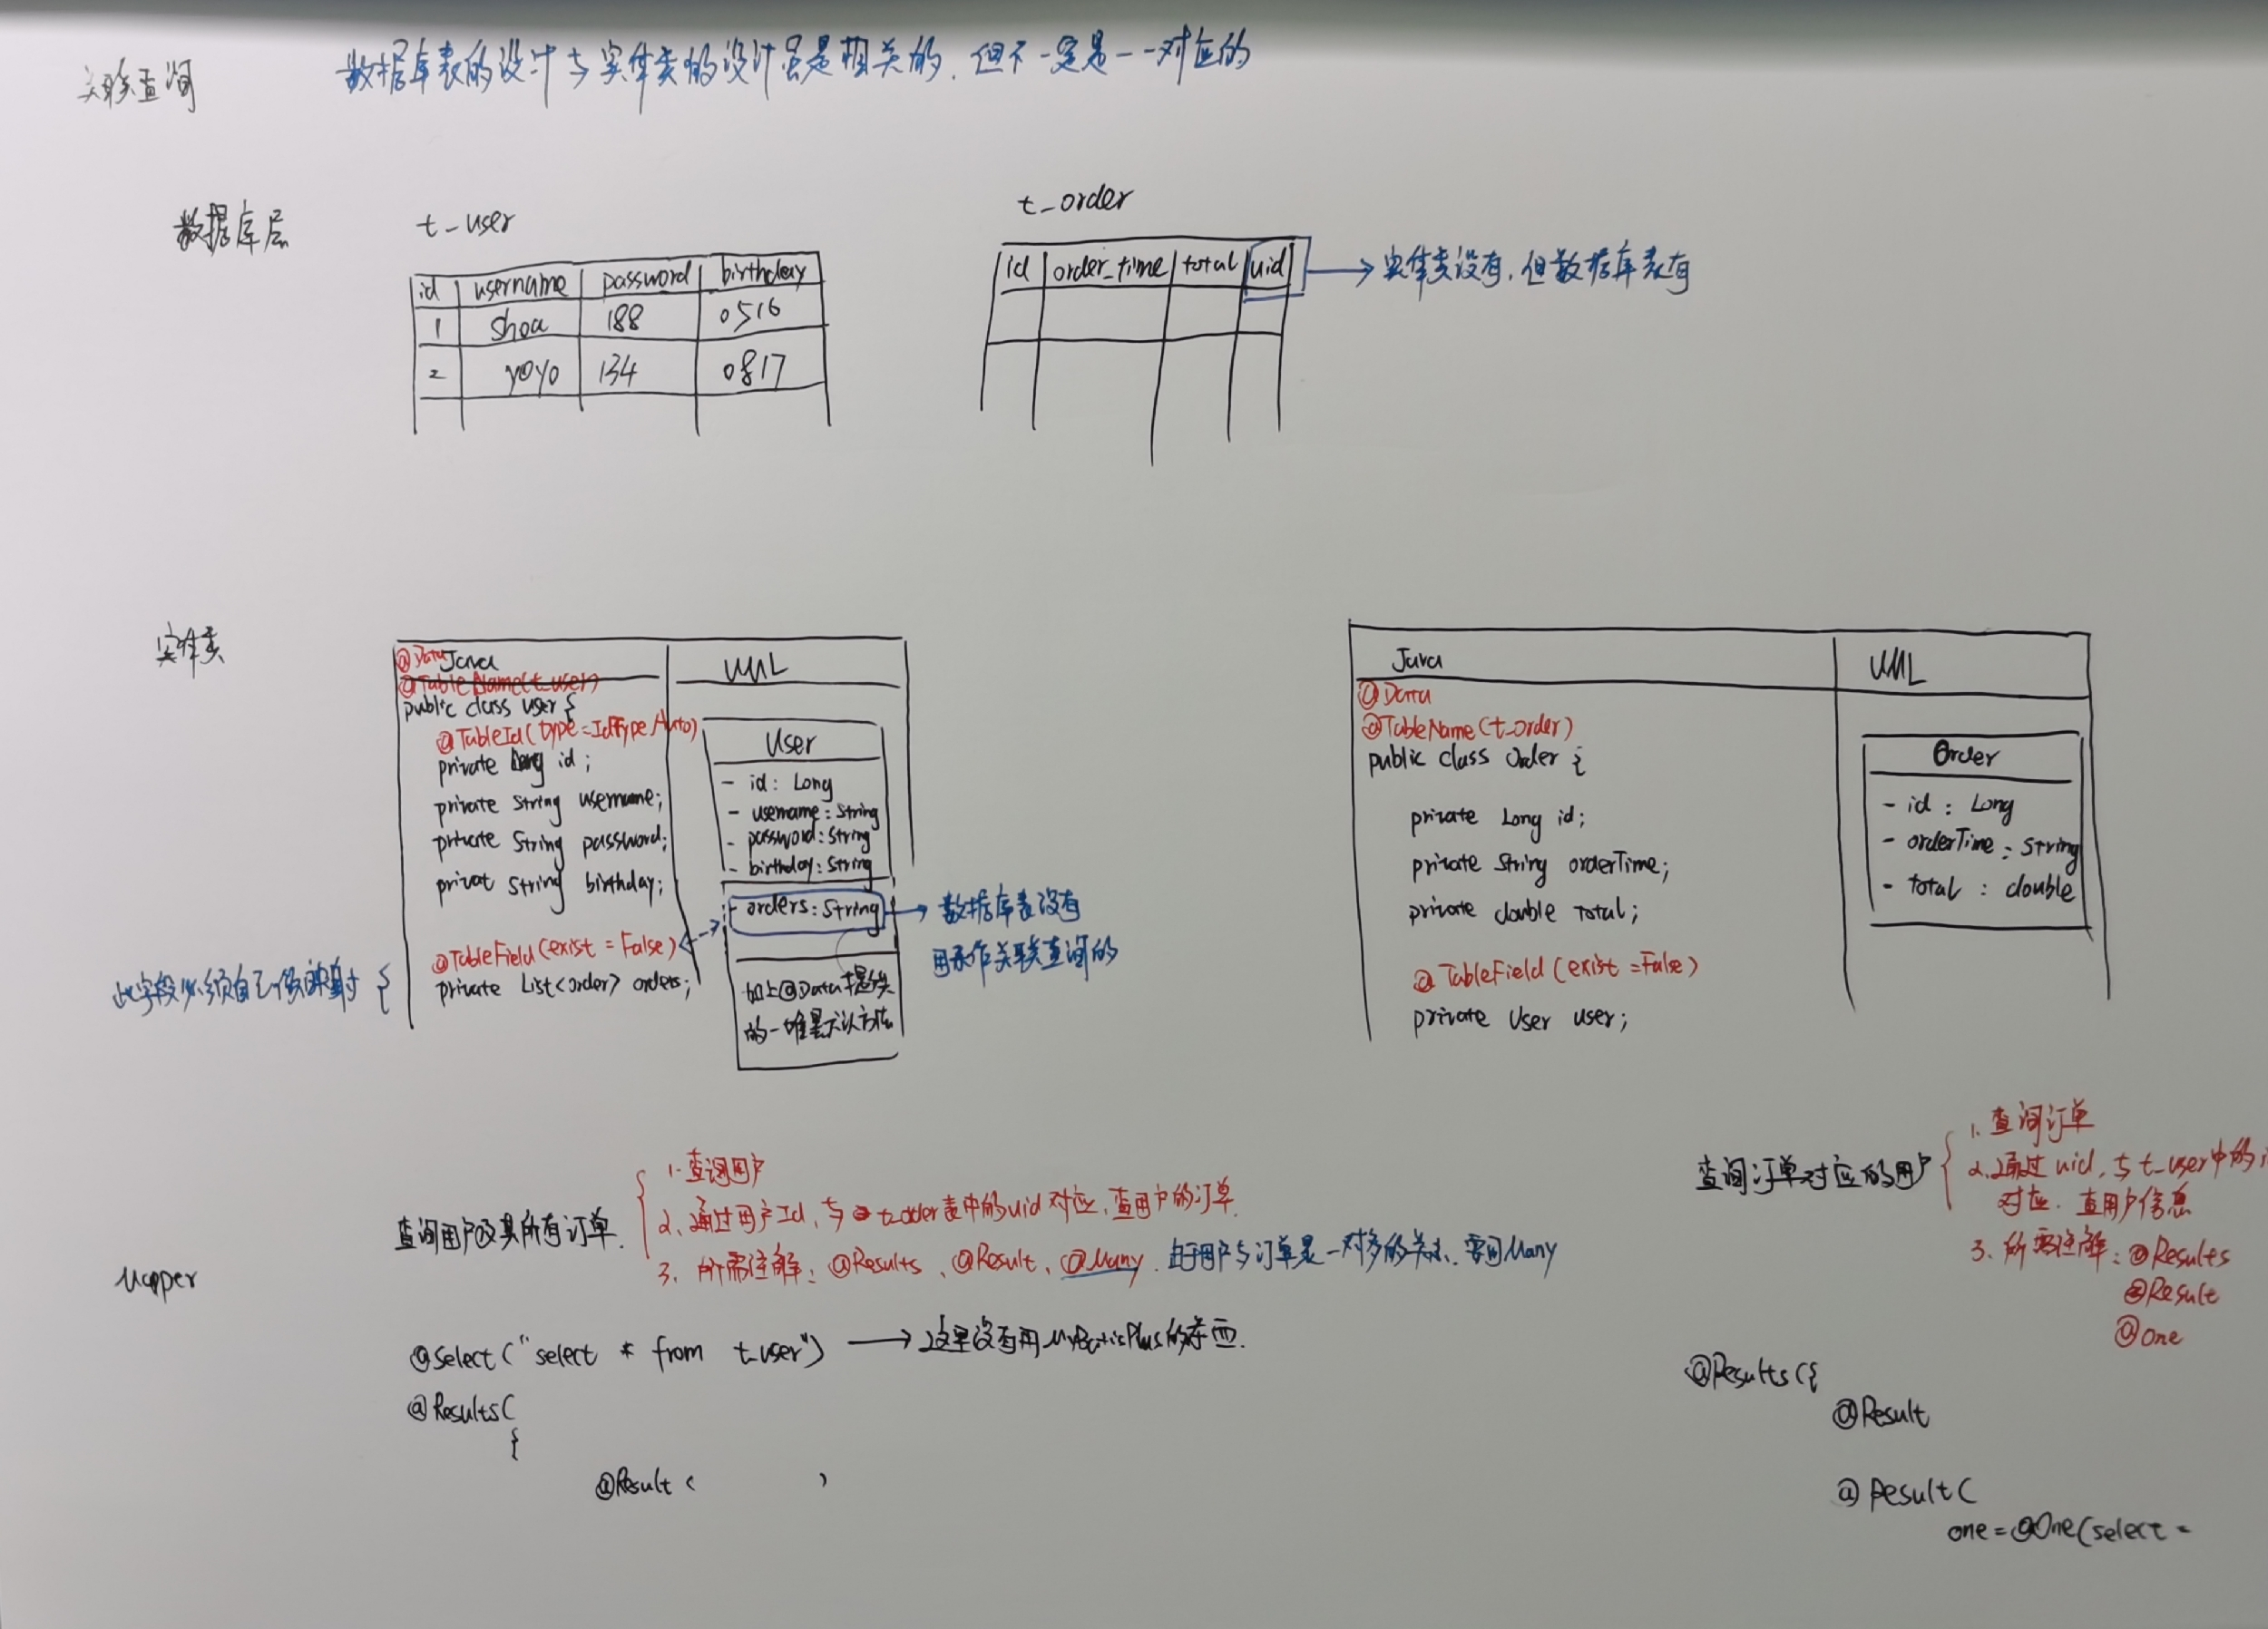 关联查询
数据库表的设计与实体类的设计虽是相关的，但不一定是一一对应的
数据库层
t_user
id username password birthday
1 shoa 188 0516
2 yoyo 134 0817
t_order
id order_time total uid
实体类没有，但数据库表有
实体类
@Data Java
UML
@TableName(t_user)
public class user {
@TableId(type=IdType.Auto)
private Long id;
private String username;
private String password;
privat String birthday;
@TableField(exist = False)
private List<order> orders;
此字段必须自己做映射 {
User
- id: Long
- username: String
- password: String
- birthday: String
- orders: String
数据库表没有
用来作关联查询的
加上@Data提供
的一堆默认方法
Java
UML
@Data
@TableName(t_order)
public class Order {
private Long id;
private String orderTime;
private double total;
@TableField(exist = False)
private User user;
Order
- id: Long
- orderTime: String
- total: double
Mapper
查询用户及其所有订单.
1. 查询用户
2、通过用户Id, 与t_order表中的uid对应, 查用户的订单.
3. 所需注解: @Results、@Result、@Many. 由于用户与订单是一对多的关系, 要用Many
@Select("select * from t_user") → 这里没有用MyBatisPlus的东西.
@Results(
{
@Result( )
查询订单对应的用户
1. 查询订单
2. 通过uid, 与t_user中的
对应. 查用户信息
3、所需注解: @Results
@Result
@One
@Results({
@Result
@Result(
one=@One(select =